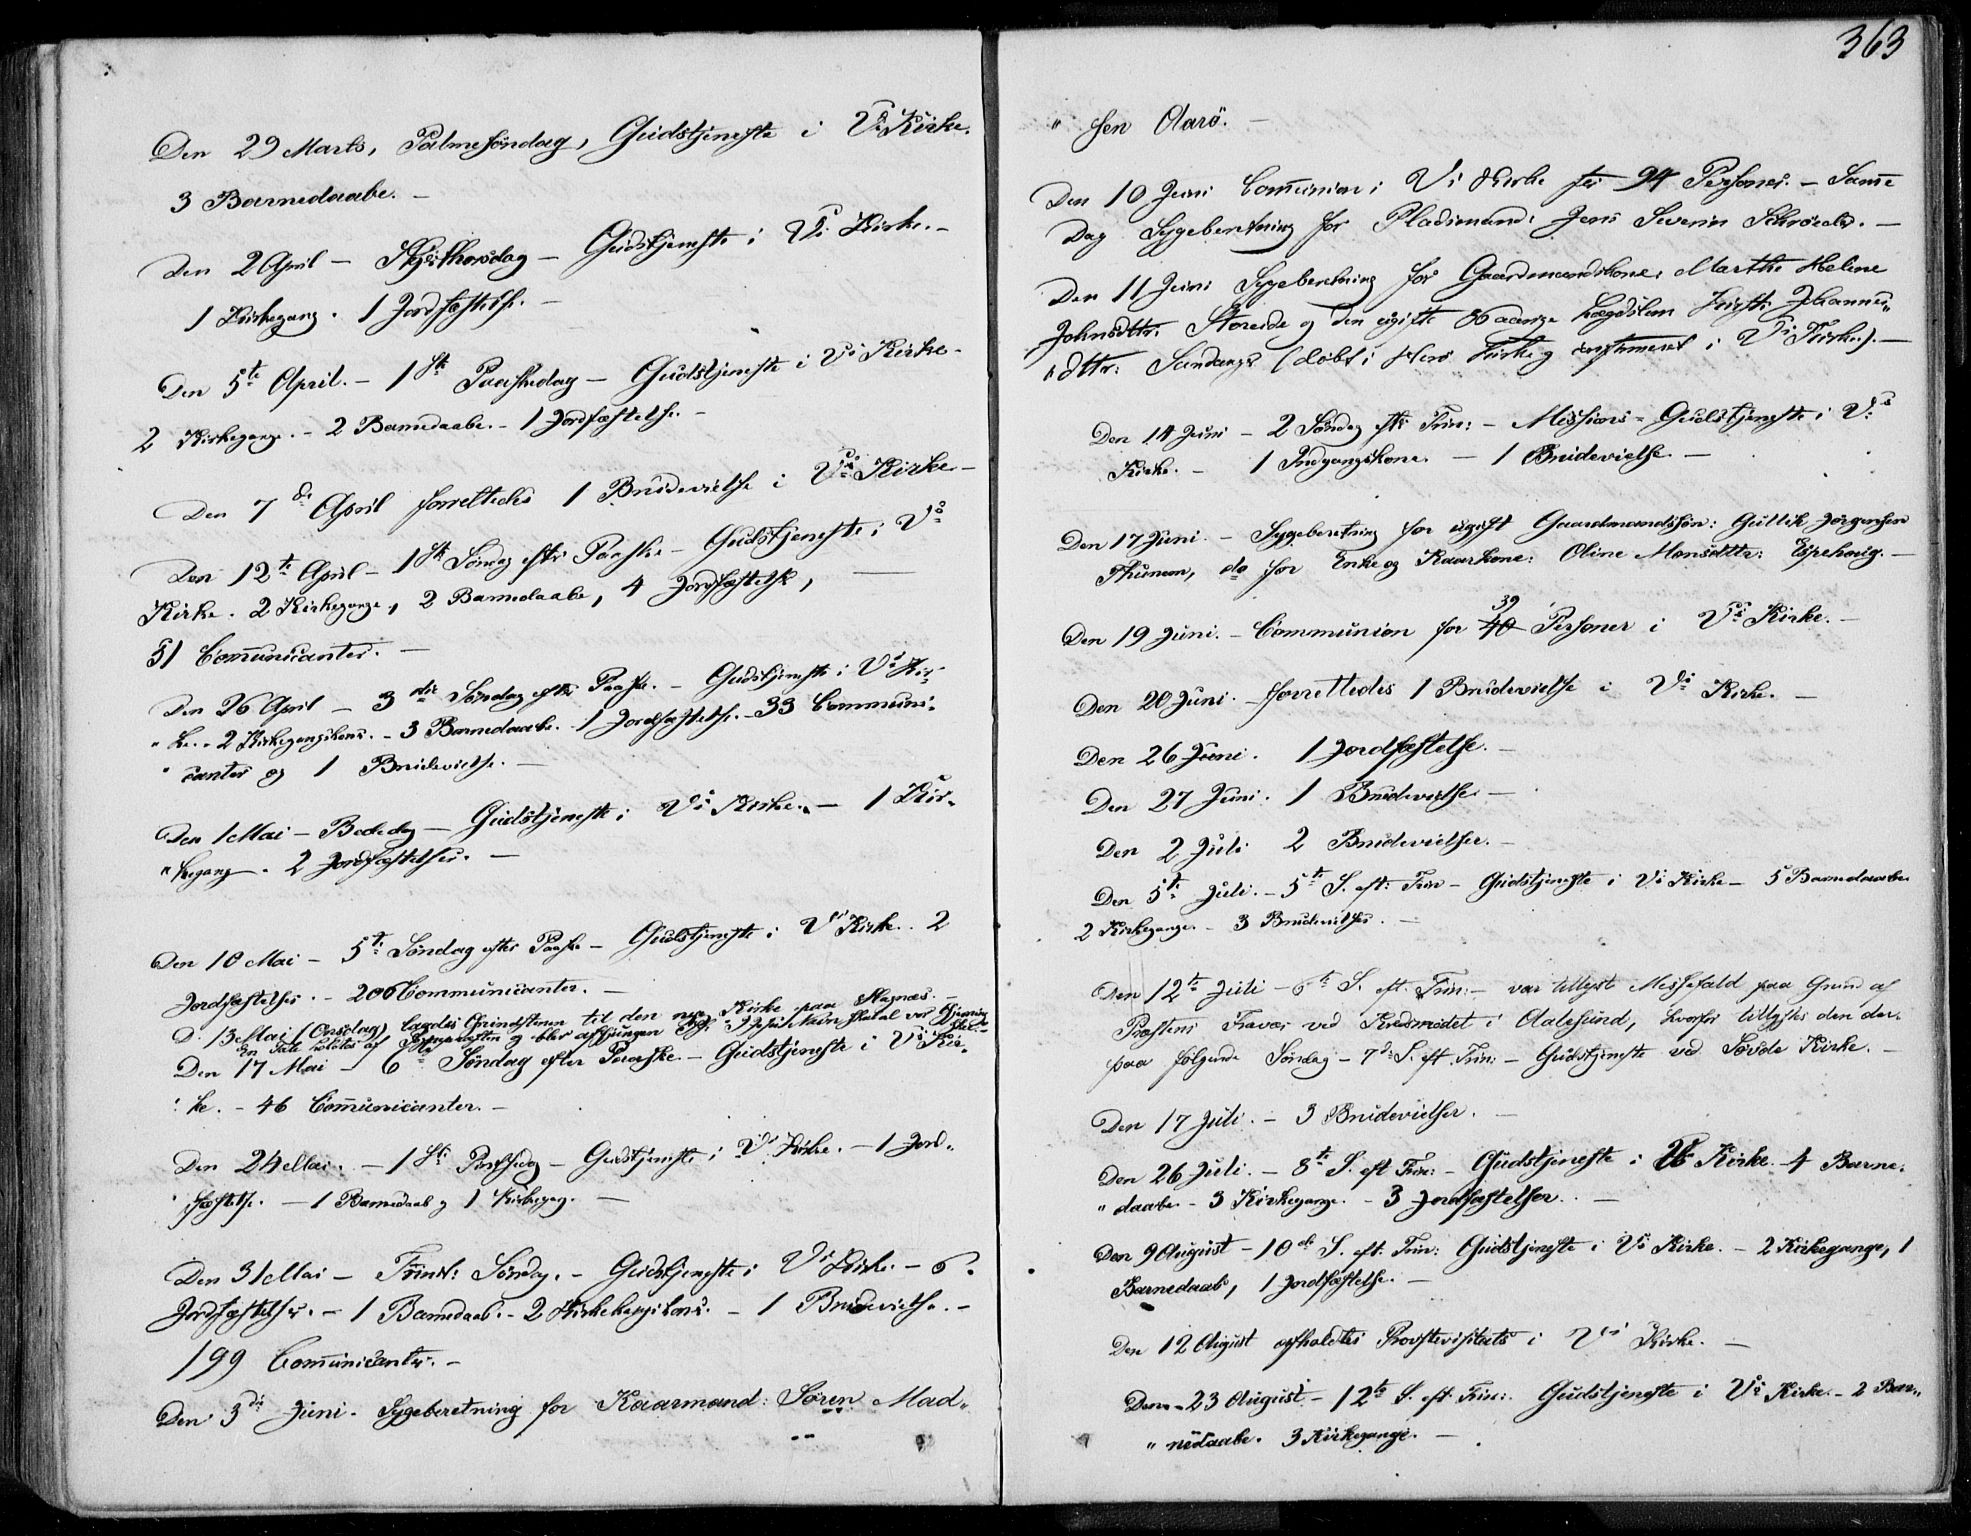 Den 29 Marts, Palmesöndag, Gudstjeneste i Vs Kirke.
3 Barnedaabe. –
Den 2 April – Skjærthorsdag – Gudstjeneste i Vs Kirke. –
1 Kirkegang. 1 Jordfæstelse. –
Den 5te April. – 1ste Paaskedag – Gudstjeneste i Vs Kirke –
2 Kirkegange. – 2 Barnedaabe. – 1 Jordfæstelse. –
Den 7de April forrettedes 1 Brudevielse i Vs Kirke –
Den 12te April – 1ste Söndag efter Paaske – Gudstjeneste i Vs
Kirke. 2 Kirkegange, 2 Barnedaabe, 4 Jordfæstelse, —
51 Communicanter. –
Den 26 April – 3die Söndag efter Paaske. – Gudstjeneste i Vs Kir-
„ ke. – 2 Kirkegangskoner. – 3 Barnedaabe. 1 Jordfæstelse. – 33 Communi-
„ canter og 1 Brudevielse. –
Den 1 Mai – Bededag – Gudstjeneste i Vs Kirke. – 1 Kir-
„ kegang – 2 Jordfæstelser. –
Den 10 Mai – 5te Söndag efter Paaske – Gudstjeneste i Vs Kirke. 2
Jordfæstelser. – 206 Communicanter. –
D. 13 Mai (Onsdag) lagdes Grundstenen til den nye Kirke paa
En Tale holdtes af og blev afsjungen
Den 17 Mai – 6te Söndag efter Paaske. – Gudstjeneste i Vs Kir-
„ ke. – 46 Communicanter. –
Den 24 Mai. – 1ste Pinsedag – Gudstjeneste i Vs Kirke. – 1 Jord-
„ fæstelse. – 1 Barnedaab og 1 Kirkegang. –
Den 31 Mai – Trinit: Söndag. – Gudstjeneste i Vs Kirke – 6.
Jordfæstelser. – 1 Barnedaab. – 2 – 1 Brudevielse. –
199 Communicanter. –
Den 3die Juni. Sygeberetning for Kaarmand: Sören Mad-
363
„ sen Aarö. –
Den 10 Juni Communion i Vs Kirke for 94 Personer. – Samme
Dag Sygeberetning for Pladsmand: Jens Severin Schröeder. –
Den 11 Juni Sygeberetning for Gaardmandskone: Marthe Helene
Johnsdtter: Storeide og den ugifte 86 aarige Lægdslem Johannes-
„ dttr: Sandanger (döbt i Herö Kirke og confirmeret i Vs Kirke). –
Den 14 Juni – 2 Söndag efter Trin: – Missions-Gudstjeneste i Vs
Kirke. – 1 Indgangskone. – 1 Brudevielse. –
Den 17 Juni. – Sygeberetning for ugift Gaardmandssön: Gullik Jörgensen
Thunem, do for Enke og Kaarkone: Oline Monsdtter: Espehoug. –
Den 19 Juni. – Communion for 40 39 Personer i Vs Kirke. –
Den 20 Juni. – forrettedes 1 Brudevielse i Vs Kirke. –
Den 26 Juni. 1 Jordfæstelse. –
Den 27 Juni. 1 Brudevielse. –
Den 2 Juli 2 Brudevielser. –
Den 5te Juli. – 5te S. eft: Trin – Gudstjeneste i Vs Kirke – 5 Barnedaabe
2 Kirkegange – 3 Brudevielser. –
Den 12te Juli – 6te S. eft. Trin: – var tillyst Messefald paa Grund af
Præstens Fravær ved Kredsmödet i Aalesund, hvorfor tillystes den der-
paa fölgende Söndag – 7de S. eft Trin: – Gudstjeneste ved Sövde Kirke. –
Den 17 Juli. – 3 Brudevielser. –
Den 26 Juli. – 8te S. eft Trin: – Gudstjeneste i Vs Kirke – 4 Barne-
„ daabe – 3 Kirkegange. – 3 Jordfæstelser. –
Den 9 August – 10de S. eft. Trin: Gudstjeneste i Vs Kirke. – 2 Kirkegange, 1
Barnedaab, 1 Jordfæstelse. –
Den 12 August afholdtes Provstevisitats i Vs Kirke. –
Den 23 August – 12te S. eft. Trin: Gudstjeneste i Vs Kirke – 2 Bar-
„ nedaabe. 3 Kirkegange. –